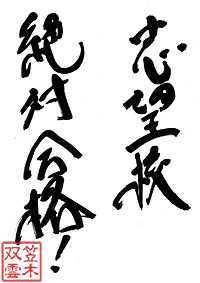 志望校
絶対合格!
笠木
双雲